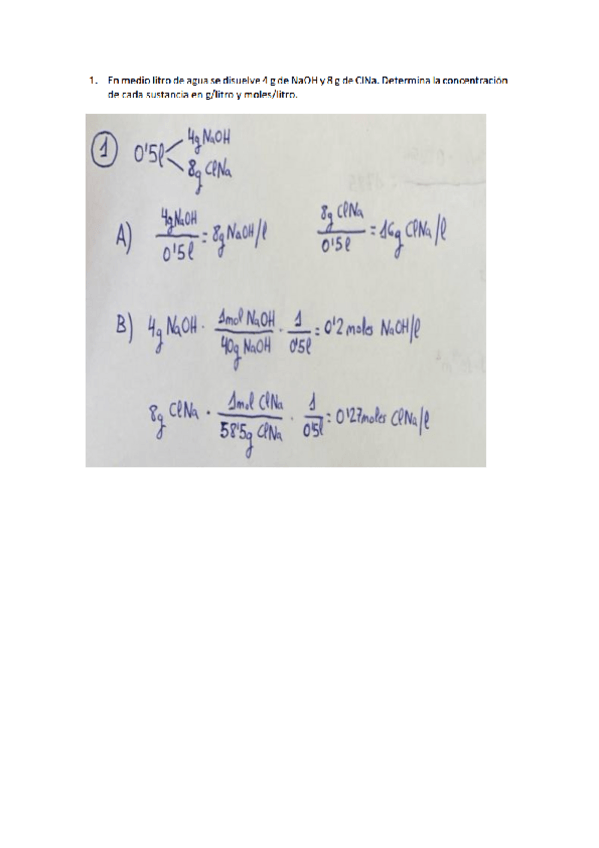 1. En medio litro de agua se disuelve 4 g de NaOH y 8 g de ClNa. Determina la concentración
de cada sustancia en g/litro y moles/litro.
1 0'5l < 4g NaOH
8g ClNa
A) 4g NaOH / 0'5l = 8g NaOH/l 8g ClNa / 0'5l = 16g ClNa/l
B) 4g NaOH · 1mol NaOH / 40g NaOH · 1 / 0'5l = 0'2 moles NaOH/l
8g ClNa · 1mol ClNa / 58'5g ClNa · 1 / 0'5l = 0'27moles ClNa/l